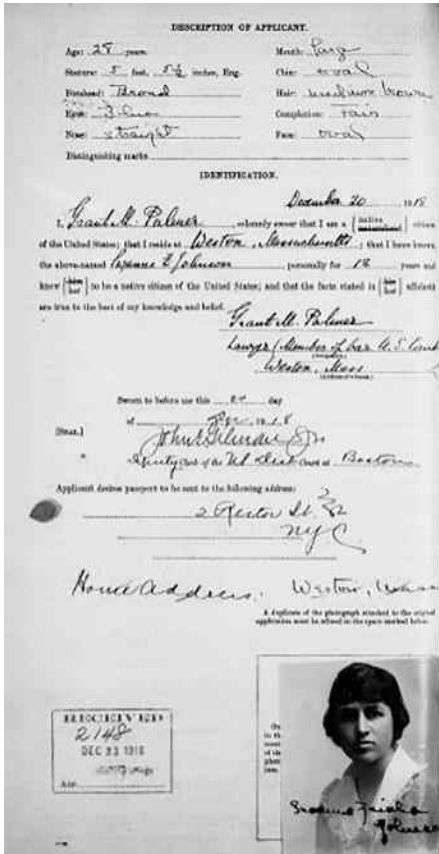 DESCRIPTION OF APPLICANT.
Age: 28 years.
Mouth: Large
Stature: 5 feet, 5½ inches, Eng.
Chin: oval
Forehead: Broad
Hair: medium brown
Eyes: Blue
Complexion: Fair
Nose: straight
Face: oval
Distinguishing marks
IDENTIFICATION.
December 20 1918
I, Grant M. Palmer, solemnly swear that I am a native citizen
of the United States; that I reside at Weston, Massachusetts; that I have known
the above-named Johnson personally for 12 years and
know him her to be a native citizen of the United States; and that the facts stated in his her affidavit
are true to the best of my knowledge and belief.
Grant M. Palmer
Lawyer (Member of bar U.S. Court
Weston, Mass
Sworn to before me this day
of Dec 1918
[SEAL.]
John Gilmore Jr
Deputy Clerk of the US Dist Court at Boston
Applicant desires passport to be sent to the following address:
2 Rector St
NYC.
Home Address. Weston, Mass
A duplicate of the photograph attached to the original
application must be affixed in the space marked below.
RECEIVED
2148
DEC 23 1918
Johnson